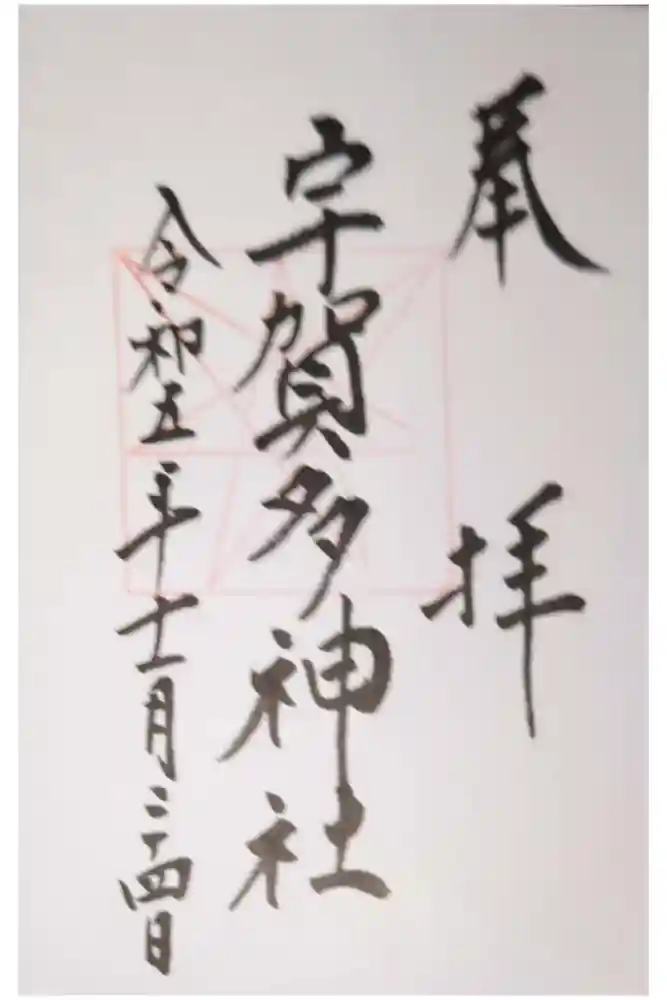 奉拝
宇賀多神社
令和五年十一月二十四日